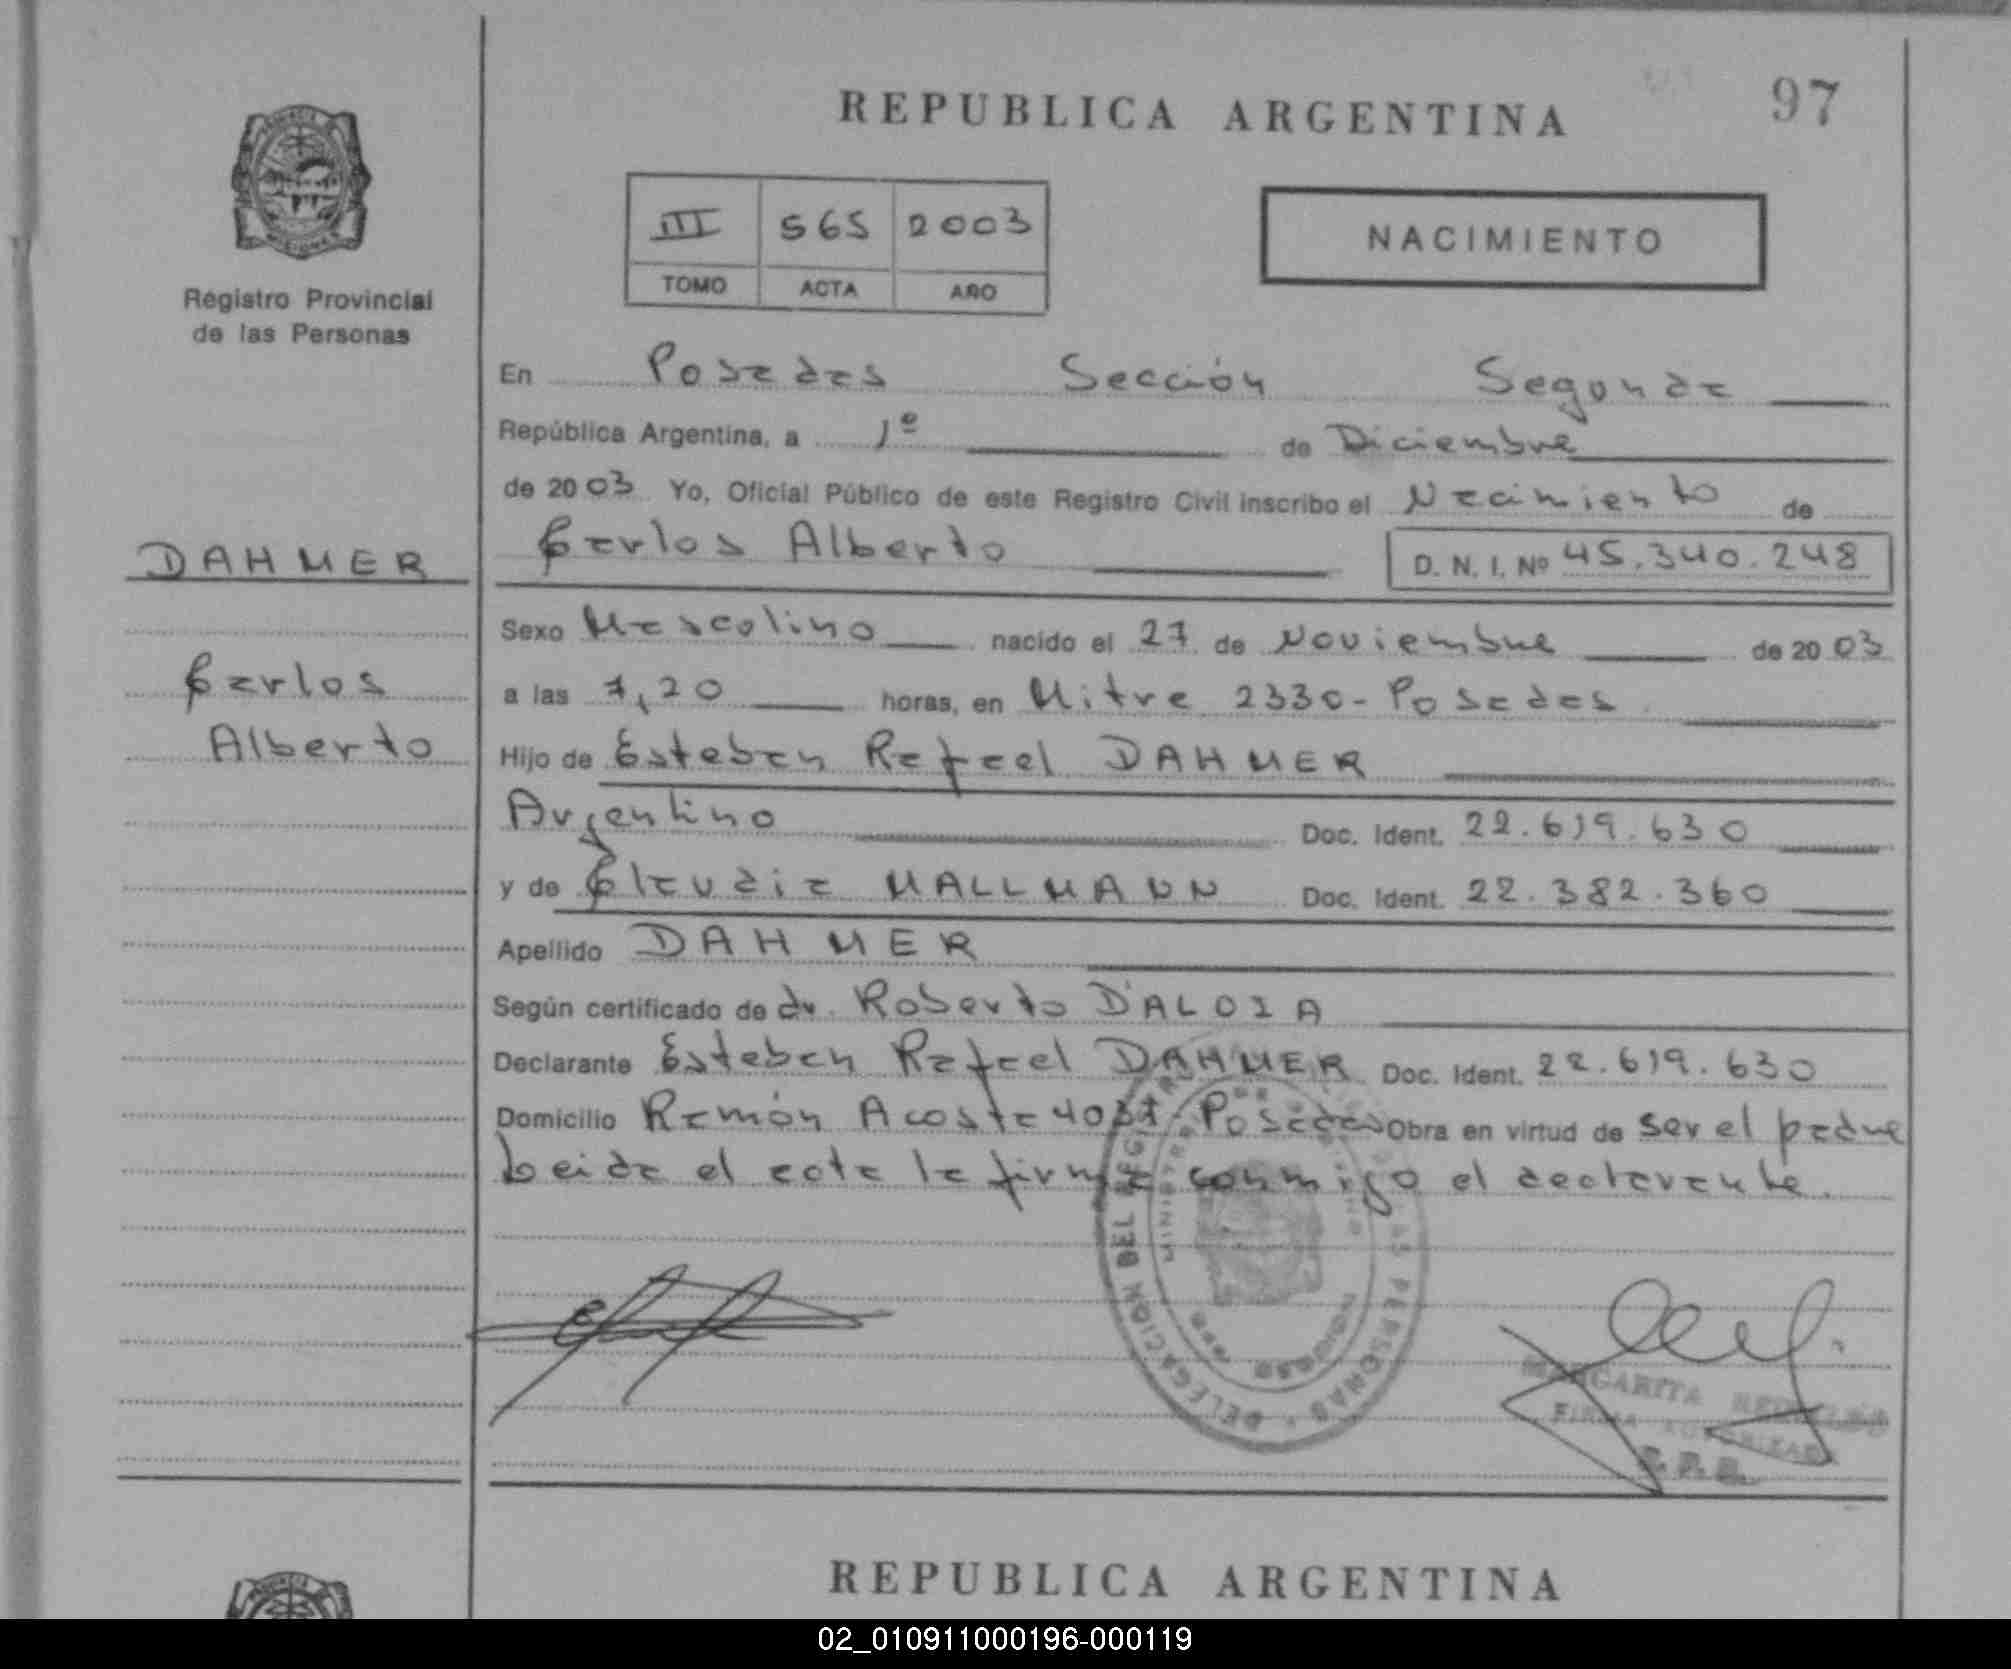 REPUBLICA ARGENTINA
97
III 565 2003
TOMO ACTA AÑO
NACIMIENTO
Registro Provincial
de las Personas
En Posadas Sección Segunda
República Argentina, a 1º de Diciembre
de 2003 Yo, Oficial Público de este Registro Civil inscribo el Nacimiento de
DAHMER
Carlos Alberto D. N. I. Nº 45.340.248
Sexo Masculino nacido el 27 de Noviembre de 2003
Carlos
a las 7,20 horas, en Mitre 2330- Posadas
Alberto
Hijo de Esteban Rafael DAHMER
Argentino Doc. Ident. 22.619.630
y de Claudia MALLMANN Doc. Ident. 22.382.360
Apellido DAHMER
Según certificado de dr. Roberto D'ALOIA
Declarante Esteban Rafael DAHMER Doc. Ident. 22.619.630
Domicilio Ramón Acosta Posadas Obra en virtud de ser el padre
Leida el acta la firma conmigo el declarante.
DELEGACION DEL REGISTRO PERSONAS
MINISTERIO GOBIERNO
POSADAS MISIONES
MARGARITA
FIRMA AUTORIZADA
REPUBLICA ARGENTINA
02_010911000196-000119